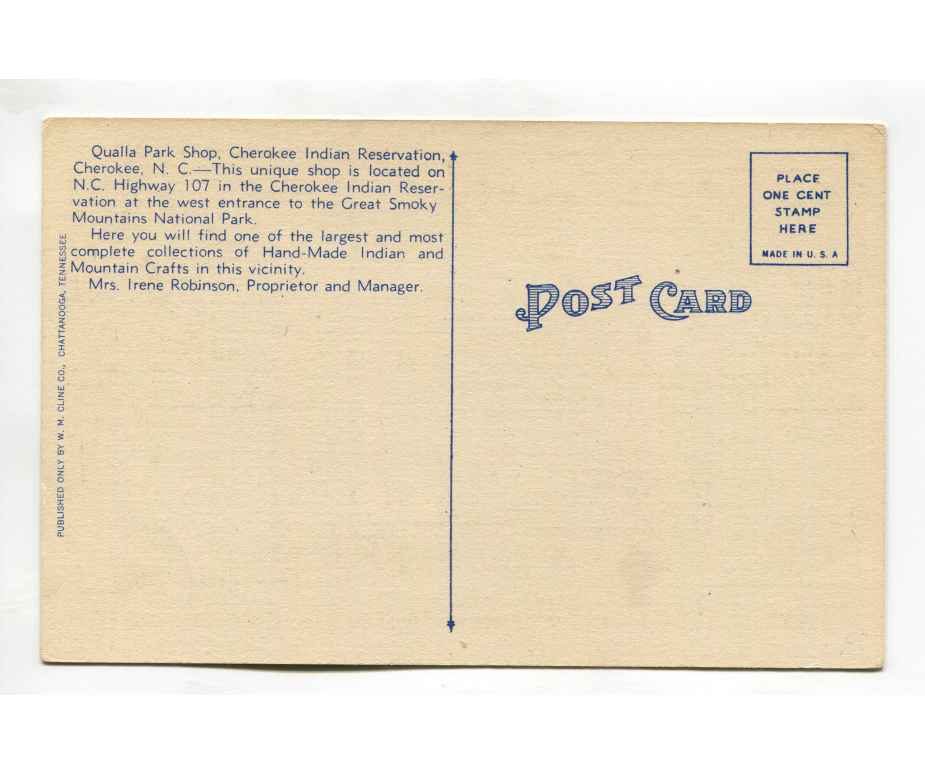 Qualla Park Shop, Cherokee Indian Reservation,
Cherokee, N. C.—This unique shop is located on
N.C. Highway 107 in the Cherokee Indian Reser-
vation at the west entrance to the Great Smoky
Mountains National Park.
Here you will find one of the largest and most
complete collections of Hand-Made Indian and
Mountain Crafts in this vicinity.
Mrs. Irene Robinson, Proprietor and Manager.
PUBLISHED ONLY BY W. M. CLINE CO., CHATTANOOGA, TENNESSEE
POST CARD
PLACE
ONE CENT
STAMP
HERE
MADE IN U. S. A